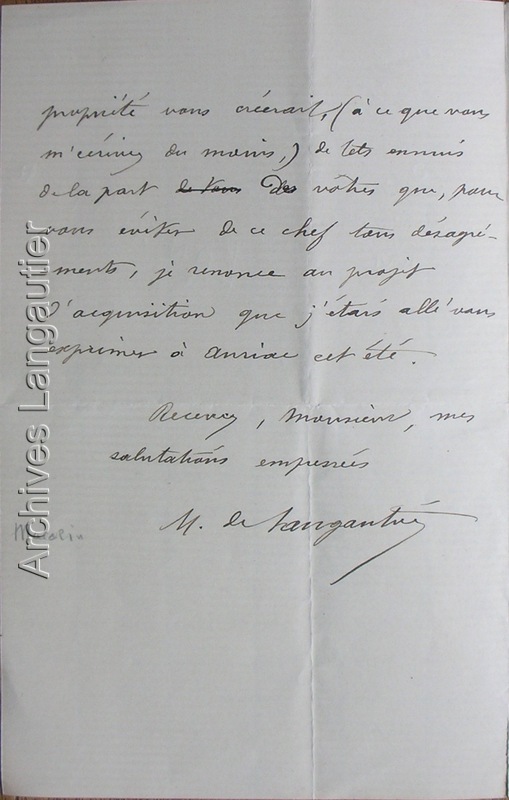 propriété vous créerait, (à ce que vous
m'écrivez du moins,) de tels ennuis
de la part de tous des vôtres que, pour
vous éviter de ce chef tous désagré-
ments, je renonce au projet
d'acquisition que j'étais allé vous
exprimer à Auriac cet été.
Recevez, Monsieur, mes
salutations empressées
M. de Langautié
Archives Langautier